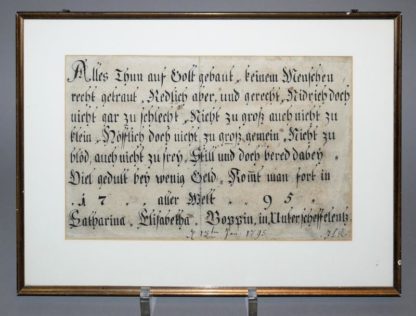 Alles Thun auf Gott gebaut, keinem Menschen
recht getraut, Redlich aber, und gerecht, Nidrich doch
nicht gar zu schlecht, Nicht zu groß auch nicht zu
klein, Höfflich doch nicht zu groß gemein, Nicht zu
blöd, auch nicht zu frey, Still und doch bered dabey,
Viel gedult bey wenig Geld, Kom̄t man fort in
.17 aller Welt .95.
Catharina, Elisabetha, in Unterscheffelentz
Jan 1795